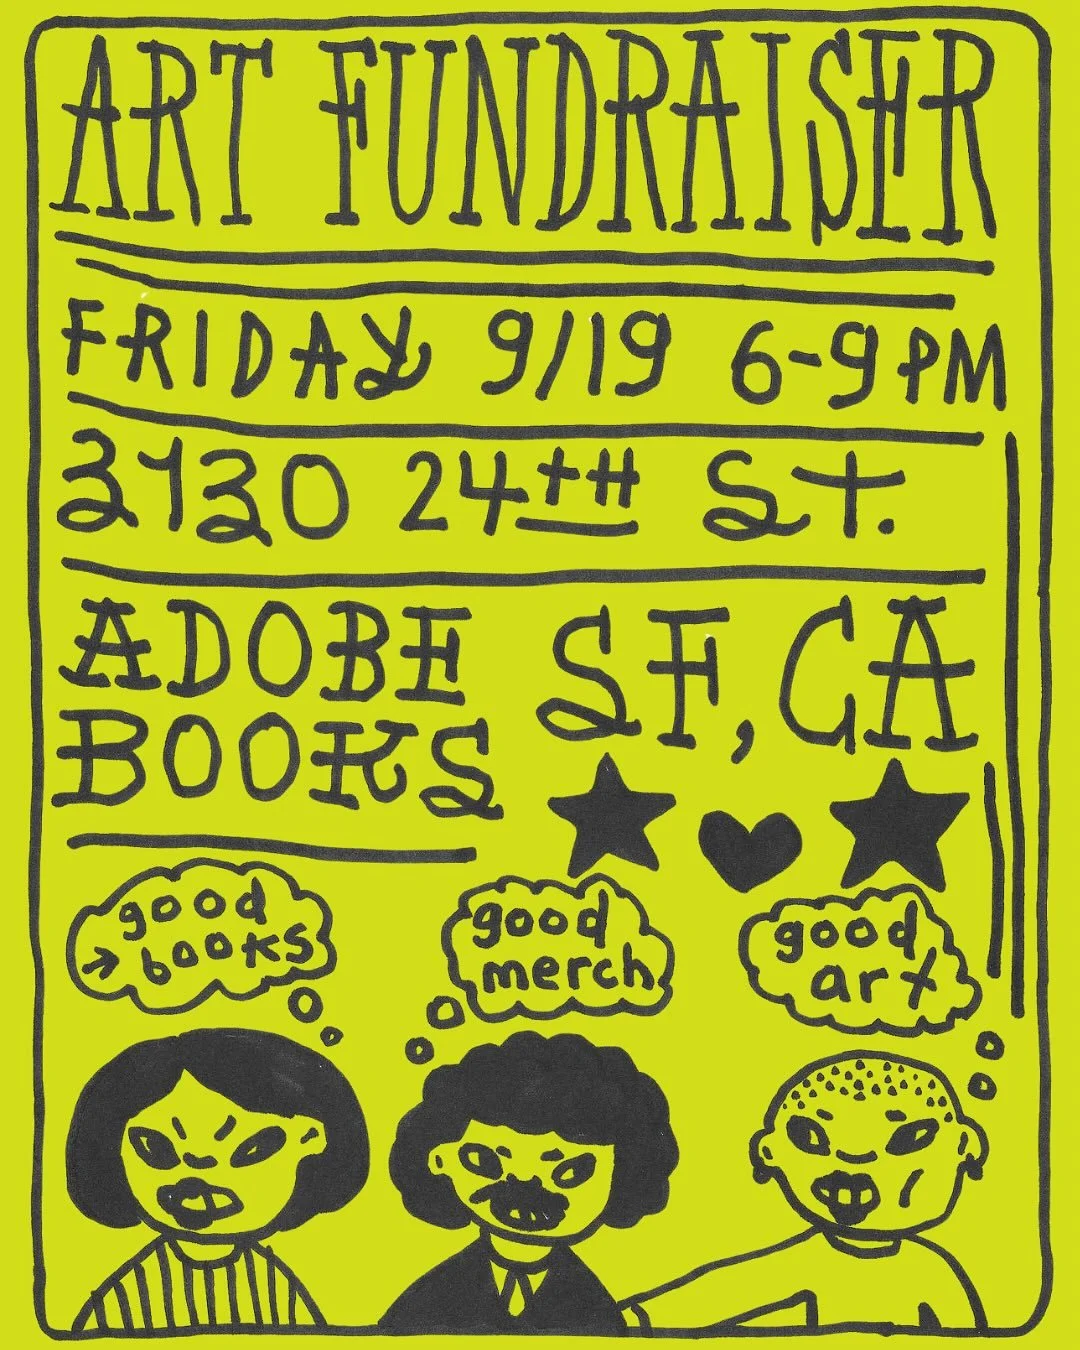 ART FUNDRAISER
FRIDAY 9/19 6-9PM
3130 24TH ST.
ADOBE
BOOKS
SF, CA
good
books
good
merch
good
art